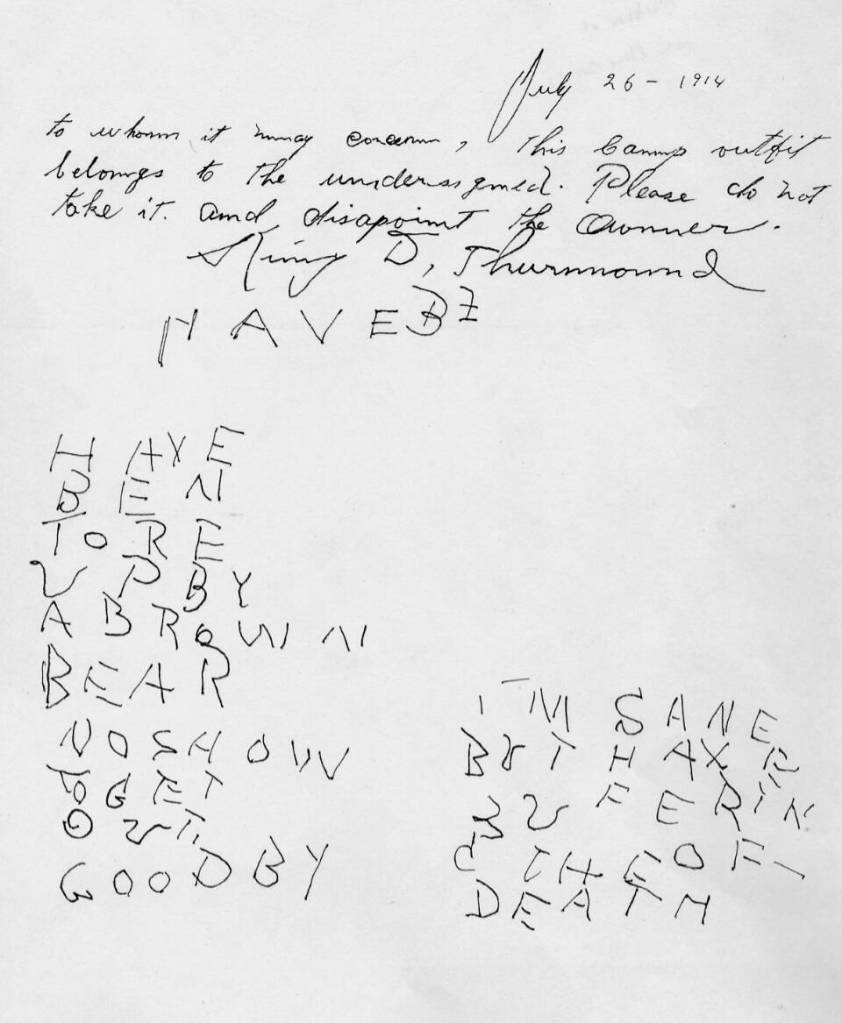 July 26 - 1914
to whom it may concern, this Camp outfit
belongs to the undersigned. Please do not
take it. and disapoint the Owner.
King D, Thurmound
HAVE BE
HAVE
BEN
TORE
UP BY
A BROWN
BEAR
NO SHOW
TO GET
OUT,
GOOD BY
I'M SANE
BUT HAVE
SUFERIN
G THE OF-
DEATH